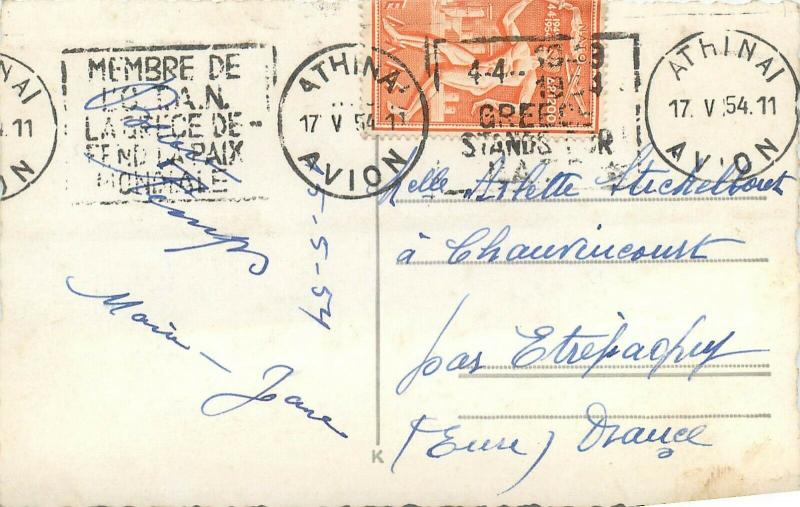 MEMBRE DE
L'O.T.A.N.
LA GRECE DE-
FEND LA PAIX
MONDIALE
ATHINAI
17 V 54.11
AVION
4-4-
GREECE
STANDS FOR
ATHINAI
17. V .54.11
AVION
15-5-54
Marie-
Jane
Melle Arlette Stichelbout
à Chauvincourt
par Etrépagny
(Eure) France
K